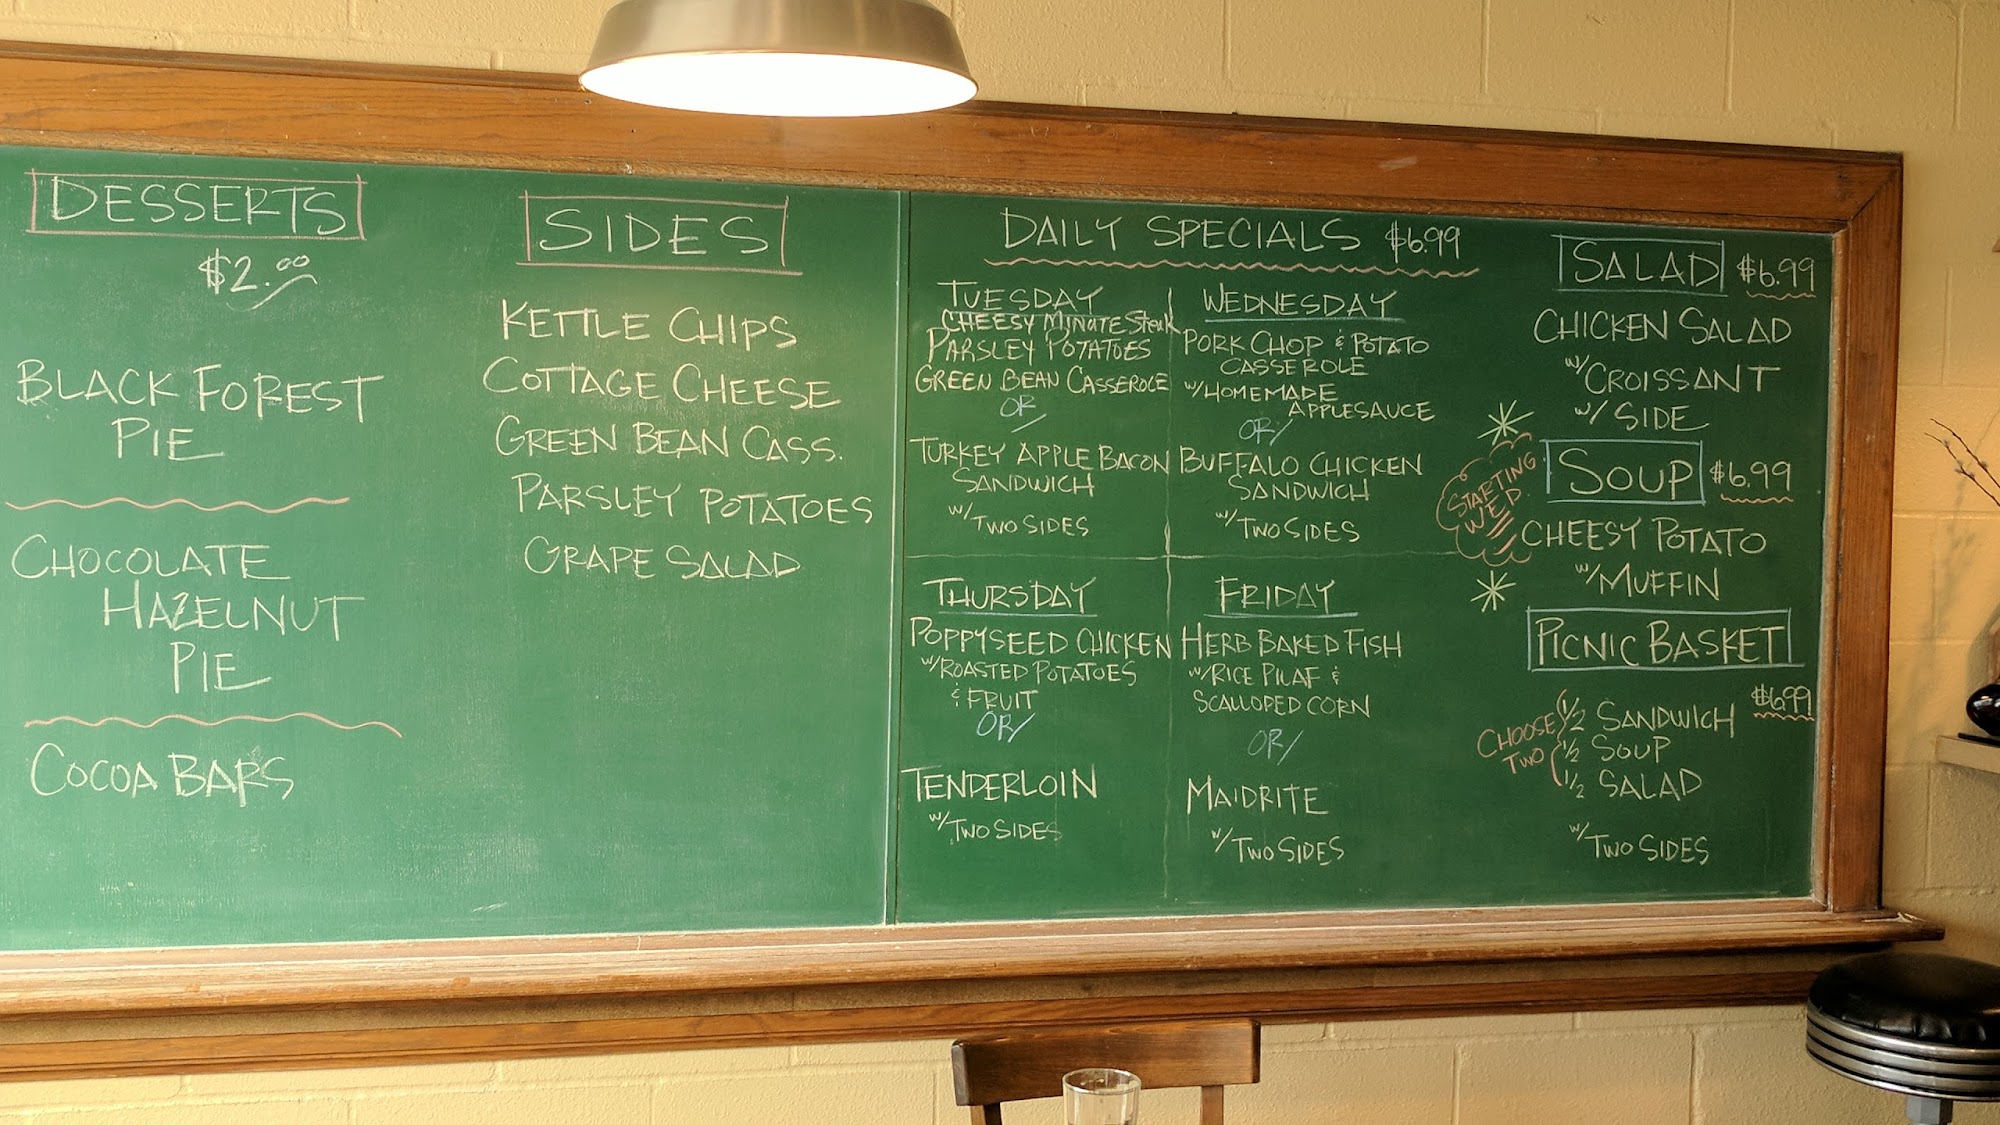 DESSERTS
$2.00
BLACK FOREST
PIE
CHOCOLATE
HAZELNUT
PIE
COCOA BARS
SIDES
KETTLE CHIPS
COTTAGE CHEESE
GREEN BEAN CASS.
PARSLEY POTATOES
GRAPE SALAD
DAILY SPECIALS $6.99
TUESDAY
CHEESY MINUTE Steak
PARSLEY POTATOES
GREEN BEAN CASSEROLE
OR/
TURKEY APPLE BACON
SANDWICH
w/ TWO SIDES
WEDNESDAY
PORK CHOP & POTATO
CASSEROLE
w/HOMEMADE
APPLESAUCE
OR/
BUFFALO CHICKEN
SANDWICH
w/TWO SIDES
THURSDAY
POPPYSEED CHICKEN
w/ROASTED POTATOES
& FRUIT
OR/
TENDERLOIN
w/TWO SIDES
FRIDAY
HERB BAKED FISH
w/RICE PILAF &
SCALLOPED CORN
OR/
MAIDRITE
w/TWO SIDES
SALAD $6.99
CHICKEN SALAD
w/CROISSANT
w/ SIDE
STARTING
WED.
SOUP $6.99
CHEESY POTATO
w/MUFFIN
PICNIC BASKET
$6.99
CHOOSE
TWO
1/2 SANDWICH
1/2 SOUP
1/2 SALAD
w/TWO SIDES